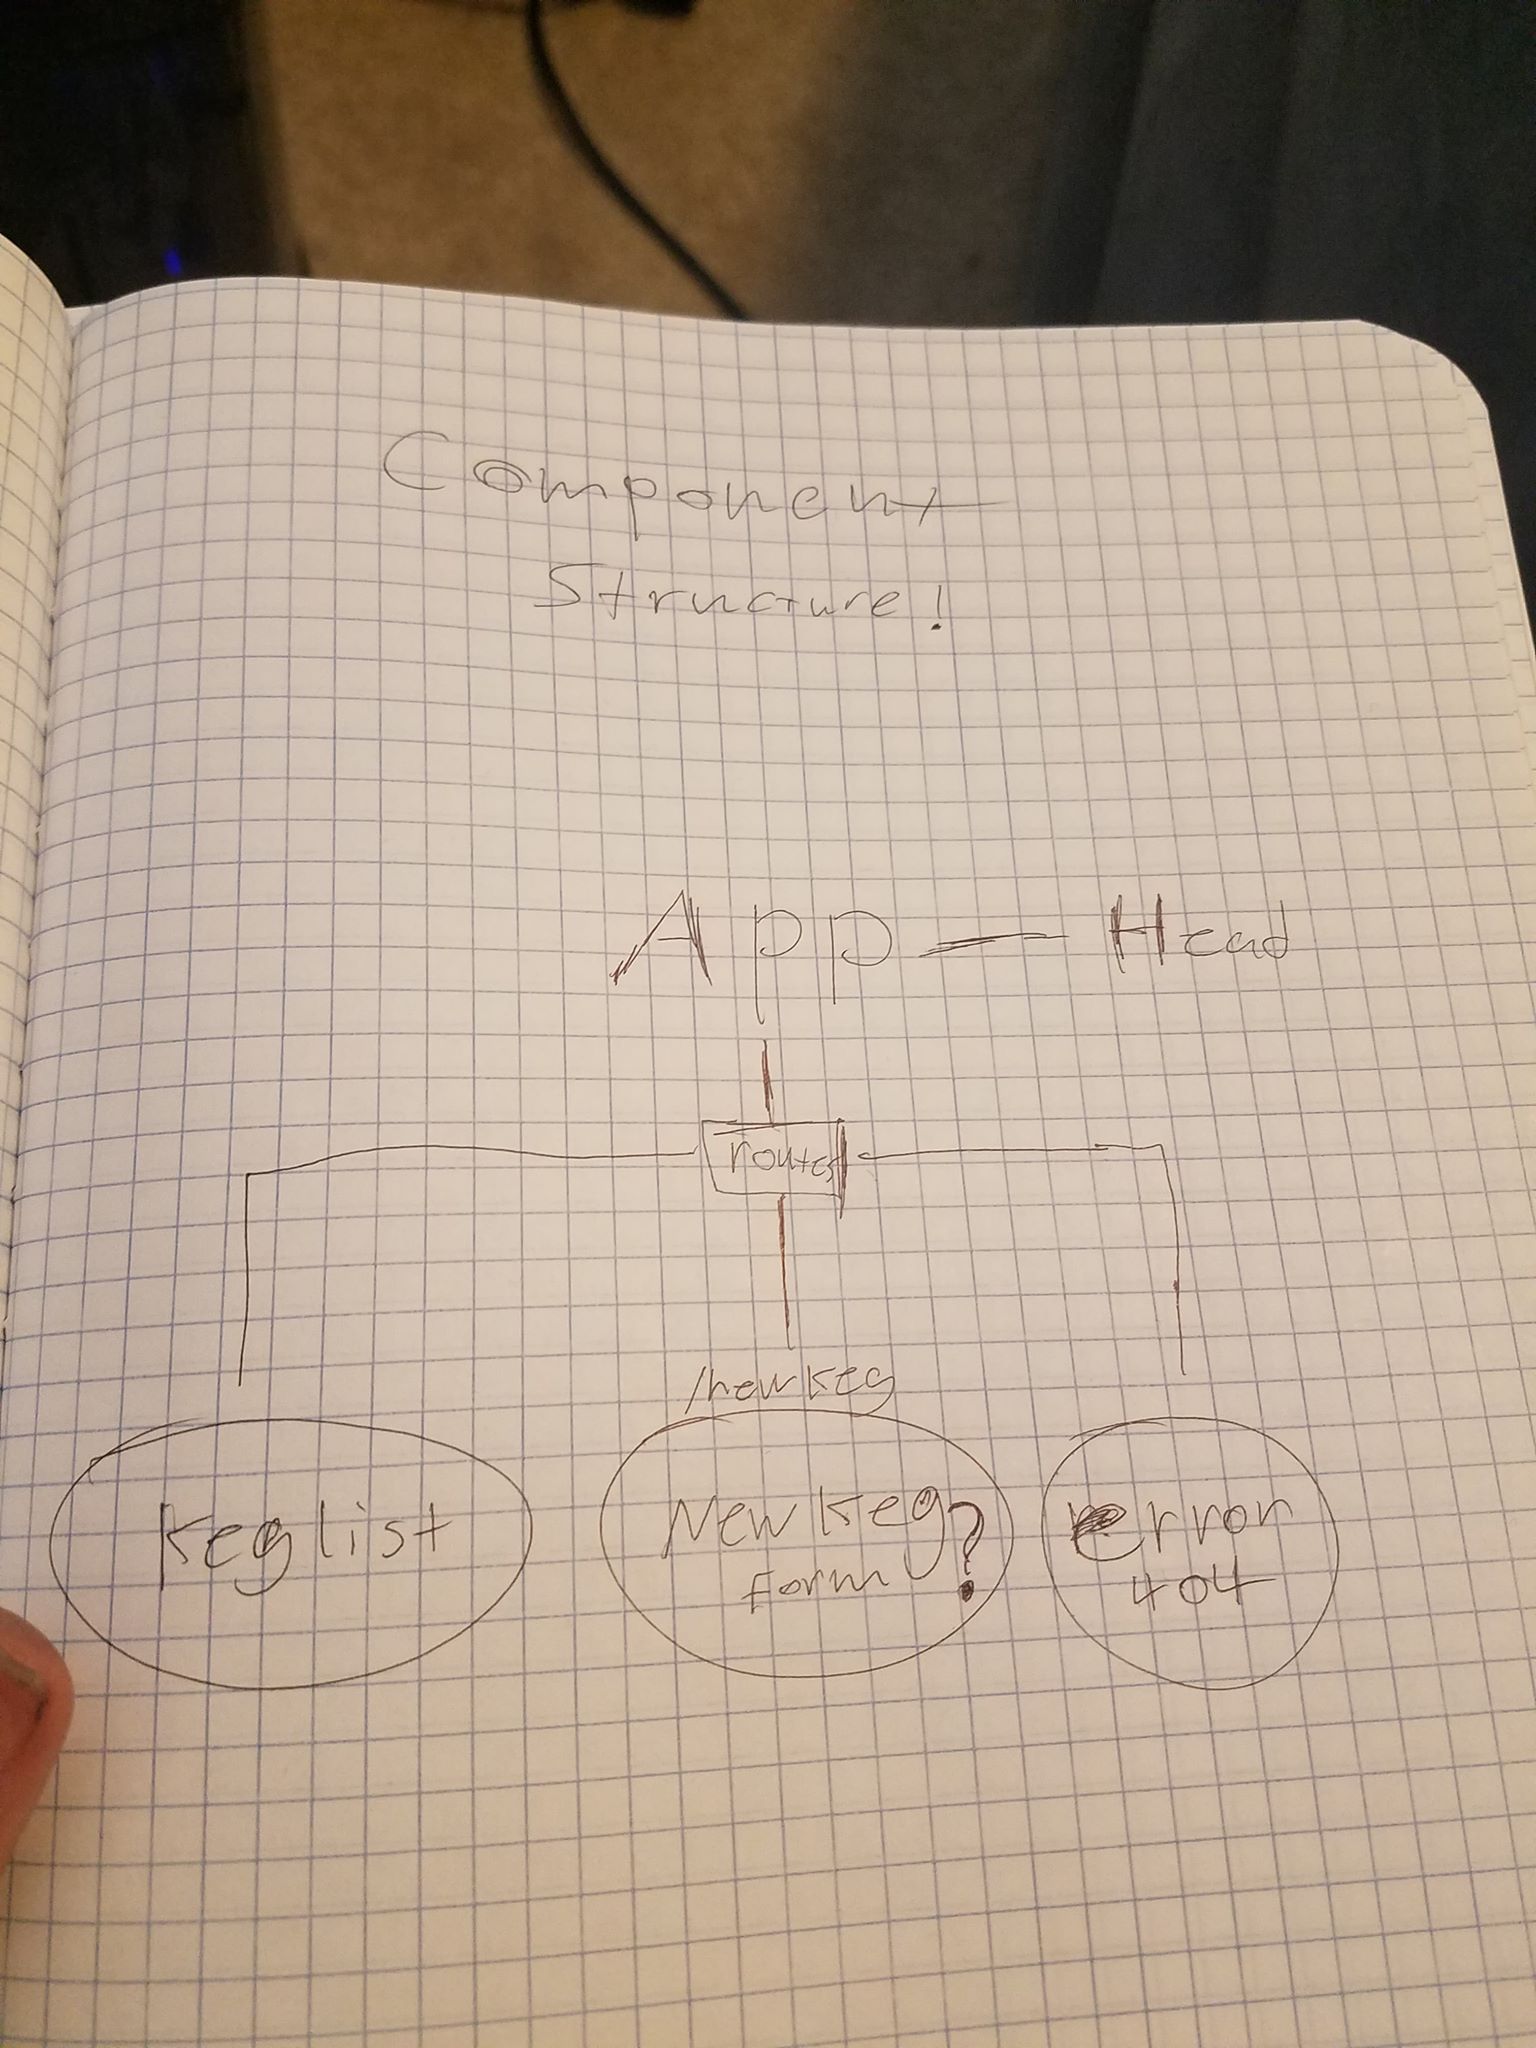 Component
Structure!
App — Head
routes
/newkeg
Keg list
New Keg
form?
error
404